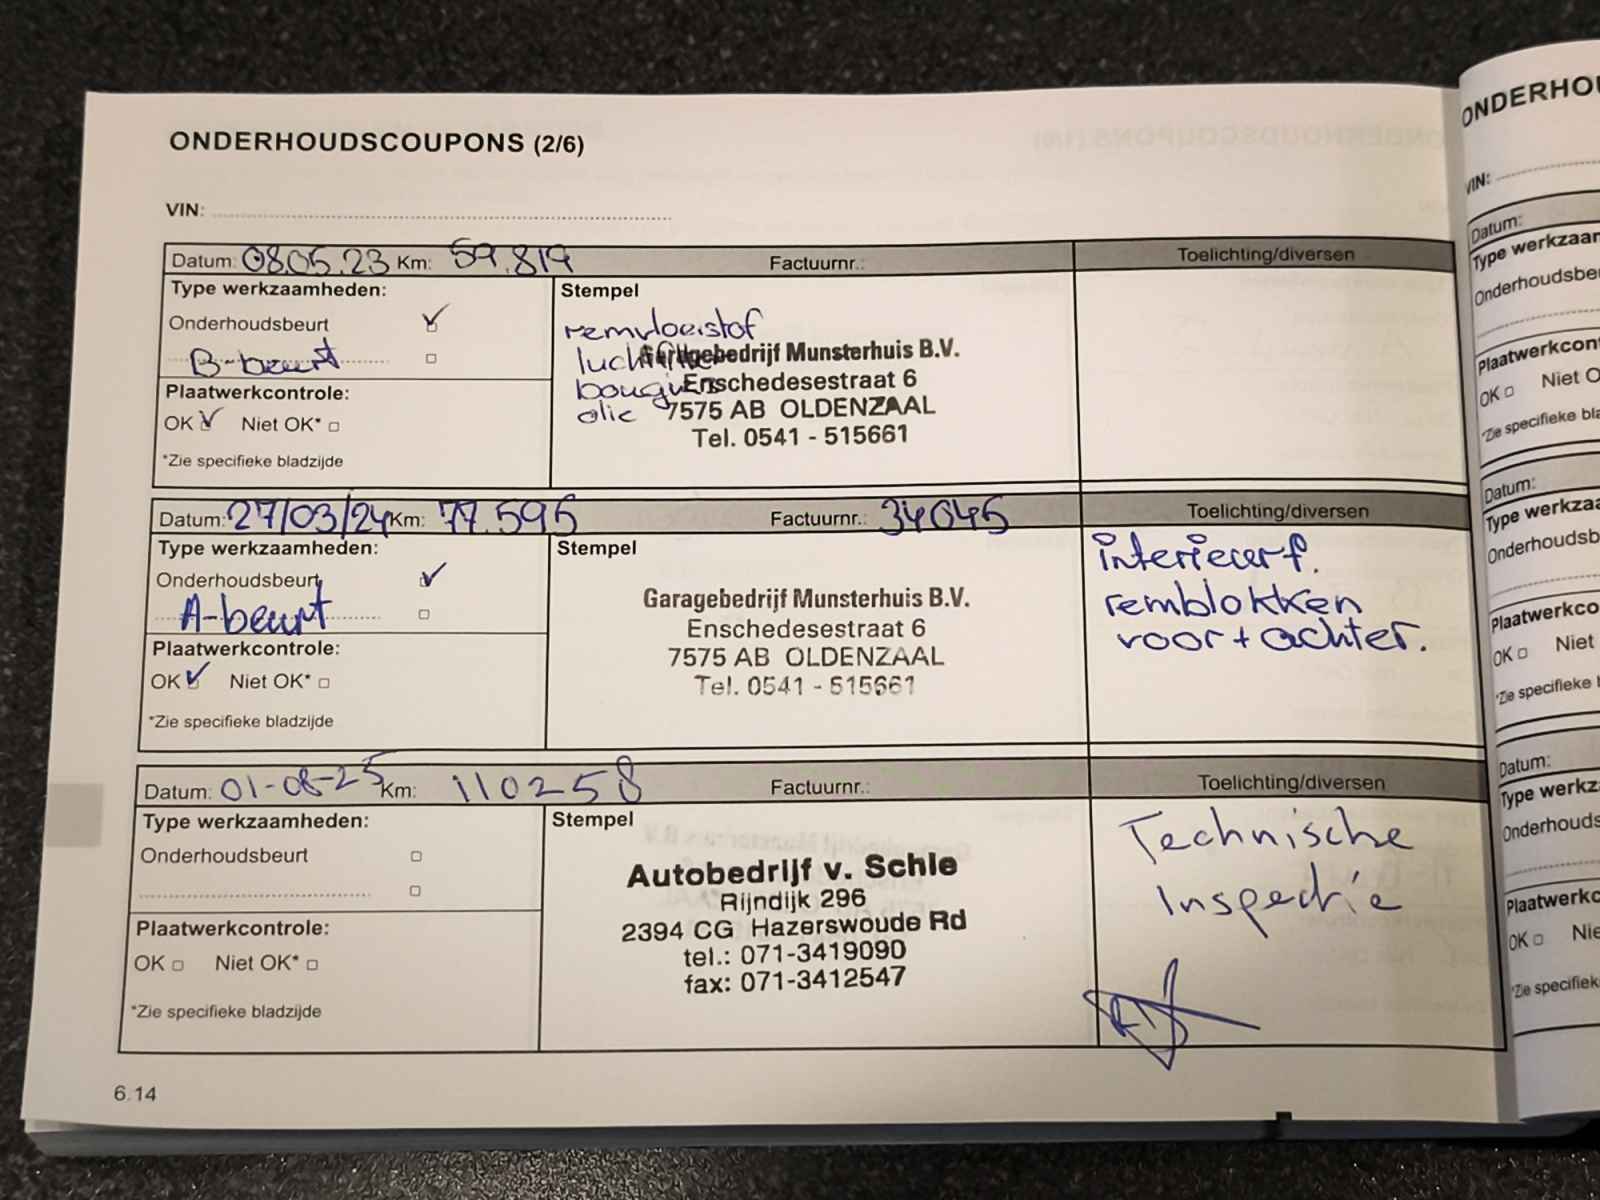 ONDERHOUDSCOUPONS (2/6)
VIN:
Datum: 08.05.23 Km: 59.819 Factuurnr.: Toelichting/diversen
Type werkzaamheden:
Onderhoudsbeurt
B-beurt
Plaatwerkcontrole:
OK Niet OK*
*Zie specifieke bladzijde
Stempel
remvloeistof
luchtfilter
bougies
olie
Garagebedrijf Munsterhuis B.V.
Enschedesestraat 6
7575 AB OLDENZAAL
Tel. 0541 - 515661
Datum: 27/03/24 Km: 77.595 Factuurnr.: 34645 Toelichting/diversen
Type werkzaamheden:
Onderhoudsbeurt
A-beurt
Plaatwerkcontrole:
OK Niet OK*
*Zie specifieke bladzijde
Stempel
Garagebedrijf Munsterhuis B.V.
Enschedesestraat 6
7575 AB OLDENZAAL
Tel. 0541 - 515661
interieurf.
remblokken
voor + achter.
Datum: 01-08-25 Km: 110258 Factuurnr.: Toelichting/diversen
Type werkzaamheden:
Onderhoudsbeurt
Plaatwerkcontrole:
OK Niet OK*
*Zie specifieke bladzijde
Stempel
Autobedrijf v. Schie
Rijndijk 296
2394 CG Hazerswoude Rd
tel.: 071-3419090
fax: 071-3412547
Technische
Inspectie
6.14
VIN:
Datum:
OK
Datum:
OK Niet
Datum:
OK